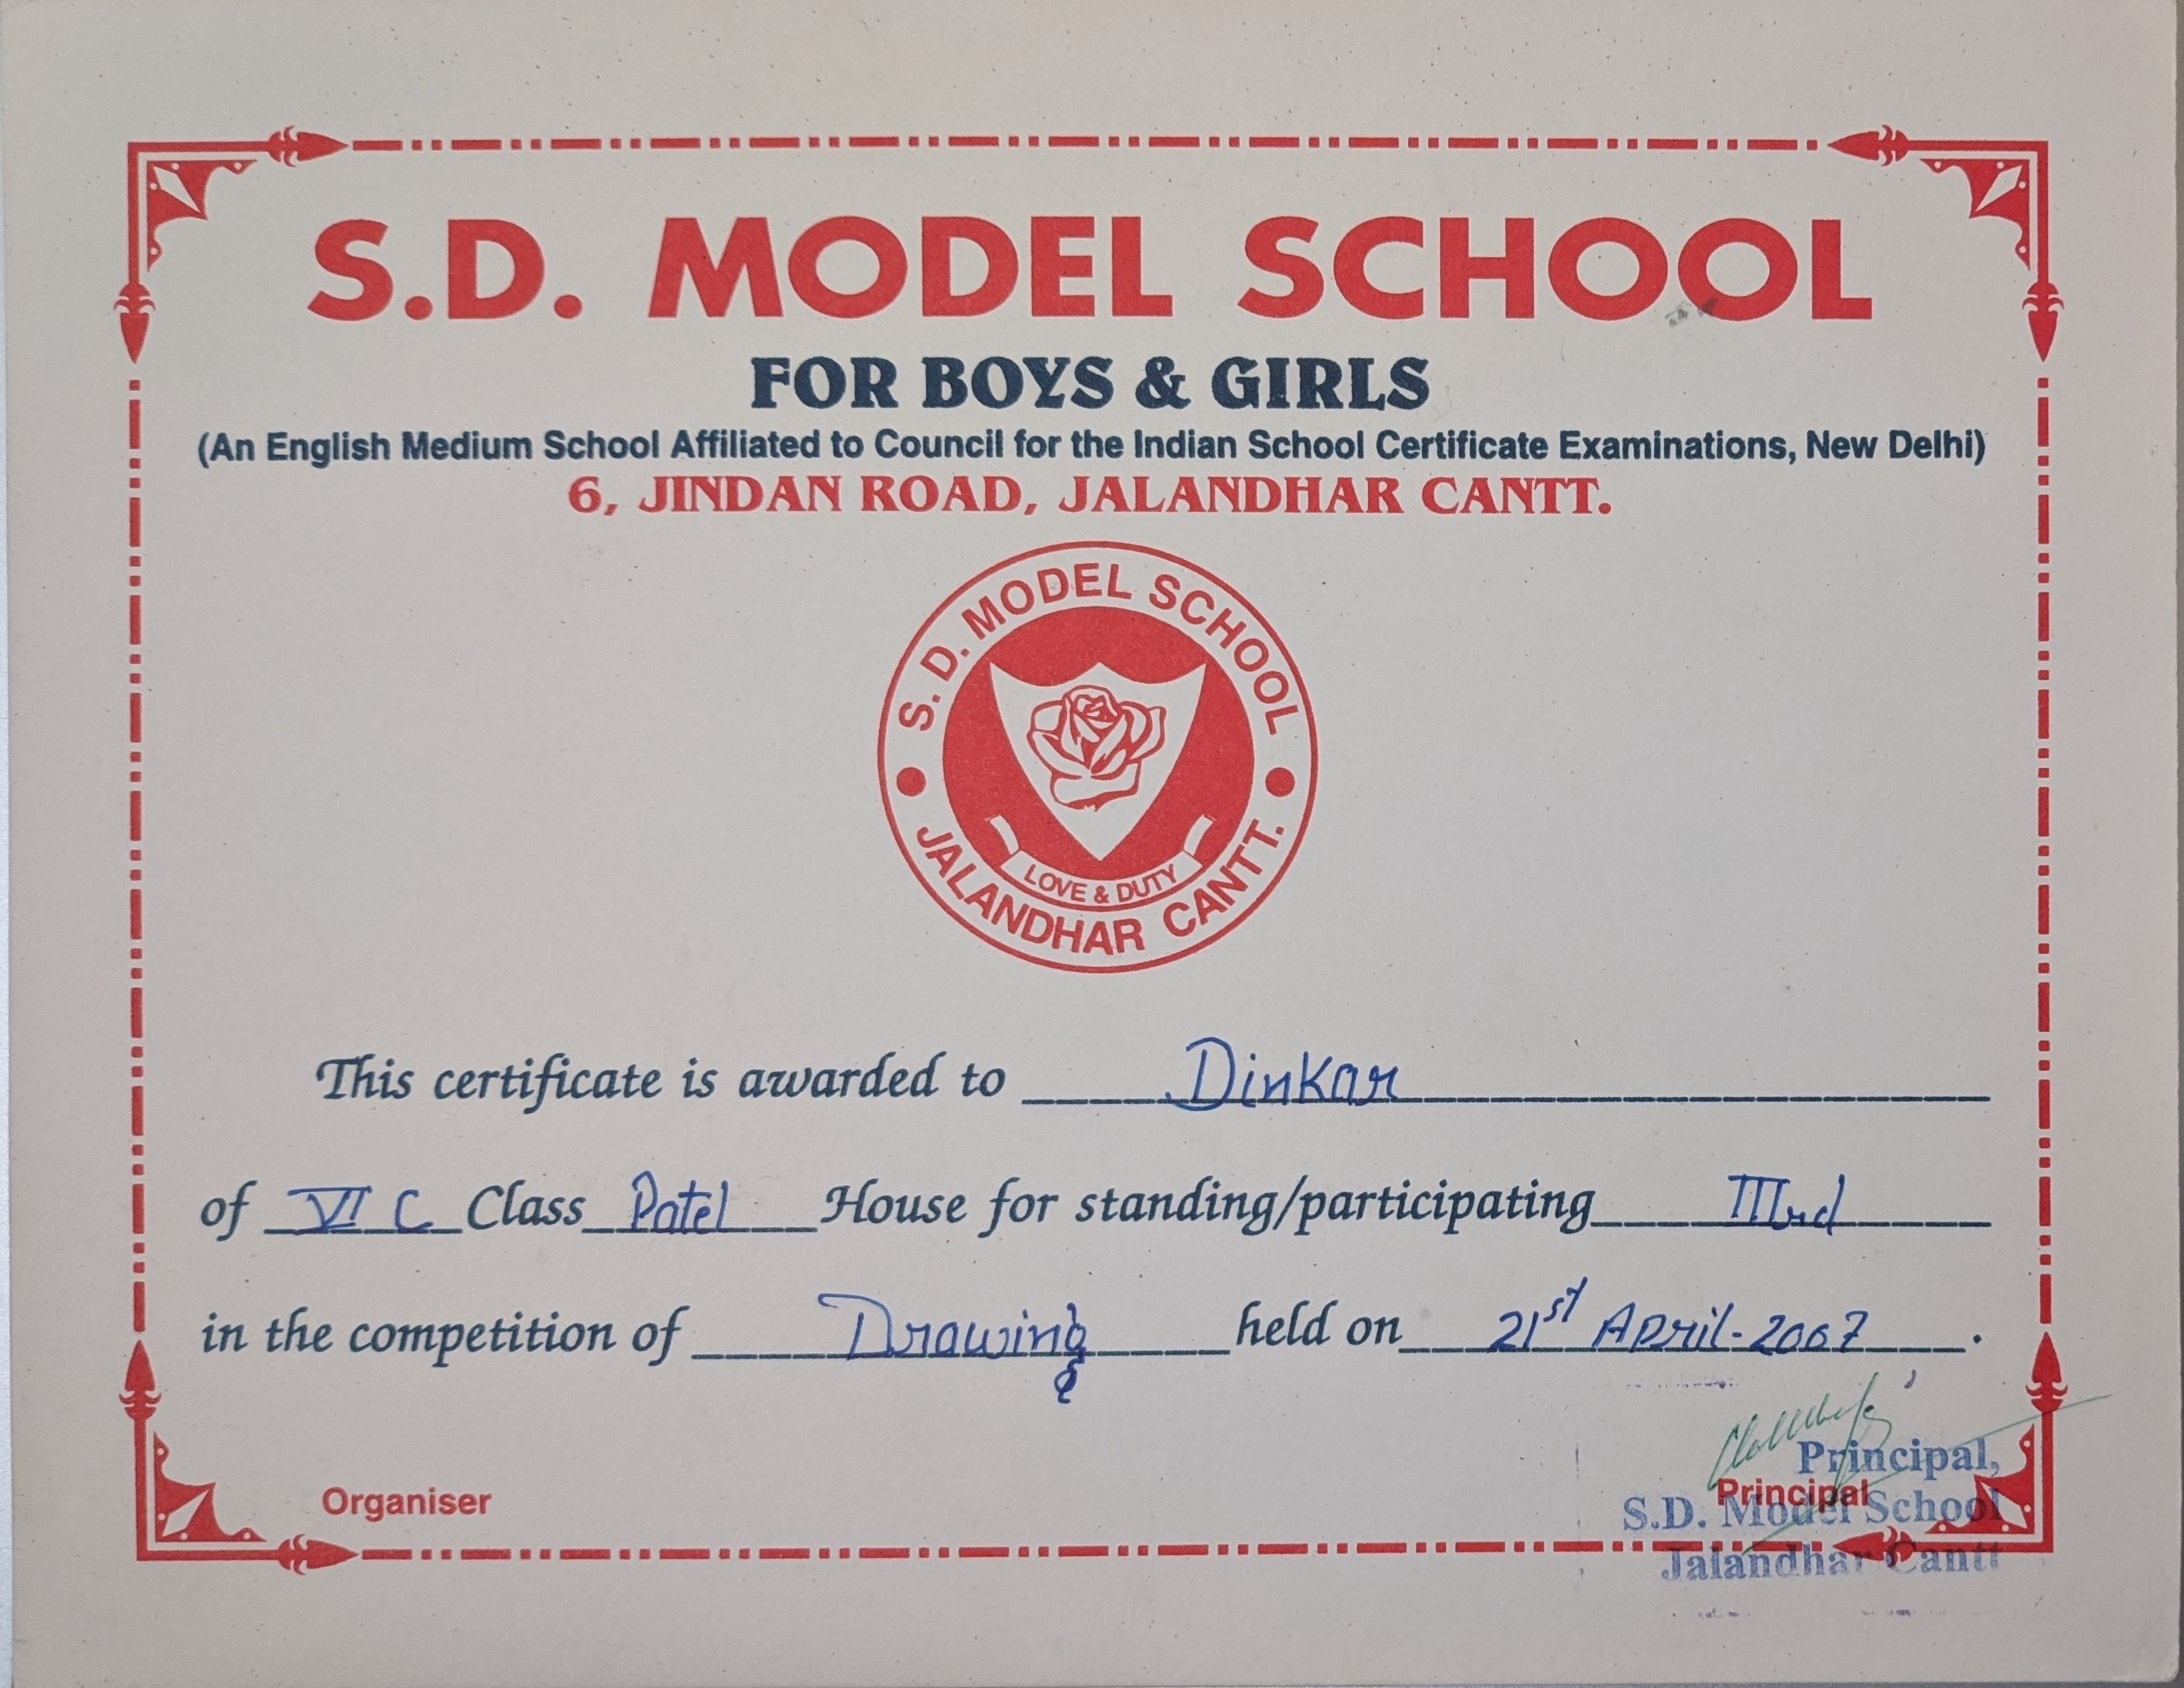 S.D. MODEL SCHOOL
FOR BOYS & GIRLS
(An English Medium School Affiliated to Council for the Indian School Certificate Examinations, New Delhi)
6, JINDAN ROAD, JALANDHAR CANTT.
S. D. MODEL SCHOOL
LOVE & DUTY
JALANDHAR CANTT.
This certificate is awarded to Dinkar
of VI C Class Patel House for standing/participating IIIrd
in the competition of Drawing held on 21st April-2007.
Organiser
Principal
Principal,
S.D. Model School
Jalandhar Cantt